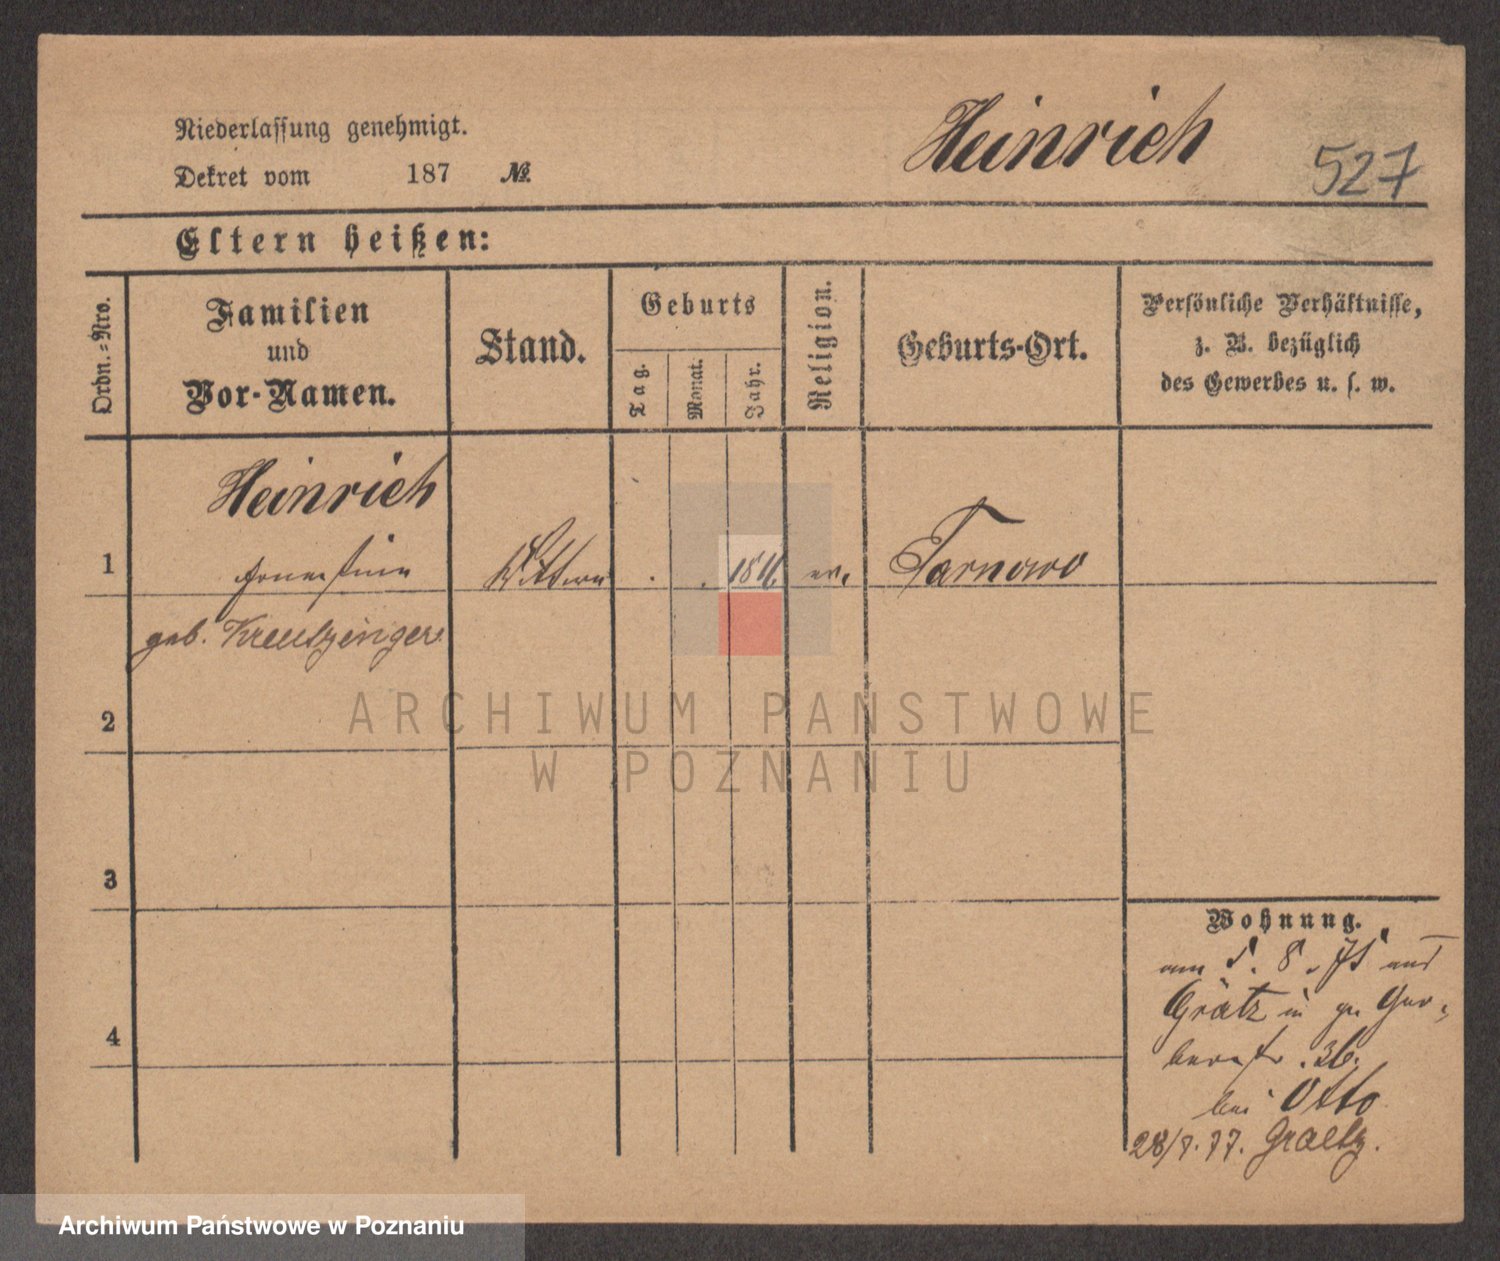 Niederlassung genehmigt.
Dekret vom 187 №
Heinrich
527
Eltern heißen:
Ordn.=Nro.
Familien
und
Vor-Namen.
Stand.
Geburts
Tag.
Monat.
Jahr.
Religion.
Geburts-Ort.
Persönliche Verhältnisse,
z. B. bezüglich
des Gewerbes u. s. w.
Heinrich
1 Ernestine ev. Tarnowo
geb. Kreutzinger
2
3
4
Wohnung.
am 5. 8. 75 aus
Grätz in gr. Ger-
berstr. 36.
bei Otto
28/8. 77. Graetz.
ARCHIWUM PAŃSTWOWE
W POZNANIU
Archiwum Państwowe w Poznaniu